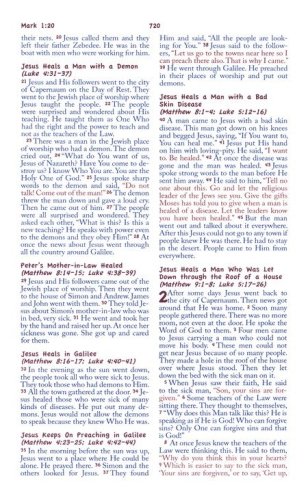 Mark 1:20
720
their nets. 20 Jesus called them and they
left their father Zebedee. He was in the
boat with men who were working for him.
Jesus Heals a Man with a Demon
(Luke 4:31-37)
21 Jesus and His followers went to the city
of Capernaum on the Day of Rest. They
went to the Jewish place of worship where
Jesus taught the people. 22 The people
were surprised and wondered about His
teaching. He taught them as One Who
had the right and the power to teach and
not as the teachers of the Law.
23 There was a man in the Jewish place
of worship who had a demon. The demon
cried out, 24 "What do You want of us,
Jesus of Nazareth? Have You come to de-
stroy us? I know Who You are. You are the
Holy One of God." 25 Jesus spoke sharp
words to the demon and said, "Do not
talk! Come out of the man!" 26 The demon
threw the man down and gave a loud cry.
Then he came out of him. 27 The people
were all surprised and wondered. They
asked each other, "What is this? Is this a
new teaching? He speaks with power even
to the demons and they obey Him!" 28 At
once the news about Jesus went through
all the country around Galilee.
Peter's Mother-in-Law Healed
(Matthew 8:14-15; Luke 4:38-39)
29 Jesus and His followers came out of the
Jewish place of worship. Then they went
to the house of Simon and Andrew. James
and John went with them. 30 They told Je-
sus about Simon's mother-in-law who was
in bed, very sick. 31 He went and took her
by the hand and raised her up. At once her
sickness was gone. She got up and cared
for them.
Jesus Heals in Galilee
(Matthew 8:16-17; Luke 4:40-41)
32 In the evening as the sun went down,
the people took all who were sick to Jesus.
They took those who had demons to Him.
33 All the town gathered at the door. 34 Je-
sus healed those who were sick of many
kinds of diseases. He put out many de-
mons. Jesus would not allow the demons
to speak because they knew Who He was.
Jesus Keeps On Preaching in Galilee
(Matthew 4:23-25; Luke 4:42-44)
35 In the morning before the sun was up,
Jesus went to a place where He could be
alone. He prayed there. 36 Simon and the
others looked for Jesus. 37 They found
Him and said, "All the people are look-
ing for You." 38 Jesus said to the follow-
ers, "Let us go to the towns near here so I
can preach there also. That is why I came."
39 He went through Galilee. He preached
in their places of worship and put out
demons.
Jesus Heals a Man with a Bad
Skin Disease
(Matthew 8:1-4; Luke 5:12-16)
40 A man came to Jesus with a bad skin
disease. This man got down on his knees
and begged Jesus, saying, "If You want to,
You can heal me." 41 Jesus put His hand
on him with loving-pity. He said, "I want
to. Be healed." 42 At once the disease was
gone and the man was healed. 43 Jesus
spoke strong words to the man before He
sent him away. 44 He said to him, "Tell no
one about this. Go and let the religious
leader of the Jews see you. Give the gifts
Moses has told you to give when a man is
healed of a disease. Let the leaders know
you have been healed." 45 But the man
went out and talked about it everywhere.
After this Jesus could not go to any town if
people knew He was there. He had to stay
in the desert. People came to Him from
everywhere.
Jesus Heals a Man Who Was Let
Down through the Roof of a House
(Matthew 9:1-8; Luke 5:17-26)
2 After some days Jesus went back to
the city of Capernaum. Then news got
around that He was home. 2 Soon many
people gathered there. There was no more
room, not even at the door. He spoke the
Word of God to them. 3 Four men came
to Jesus carrying a man who could not
move his body. 4 These men could not
get near Jesus because of so many people.
They made a hole in the roof of the house
over where Jesus stood. Then they let
down the bed with the sick man on it.
5 When Jesus saw their faith, He said
to the sick man, "Son, your sins are for-
given." 6 Some teachers of the Law were
sitting there. They thought to themselves,
7 "Why does this Man talk like this? He is
speaking as if He is God! Who can forgive
sins? Only One can forgive sins and that
is God!"
8 At once Jesus knew the teachers of the
Law were thinking this. He said to them,
"Why do you think this in your hearts?
9 Which is easier to say to the sick man,
'Your sins are forgiven,' or to say, 'Get up,